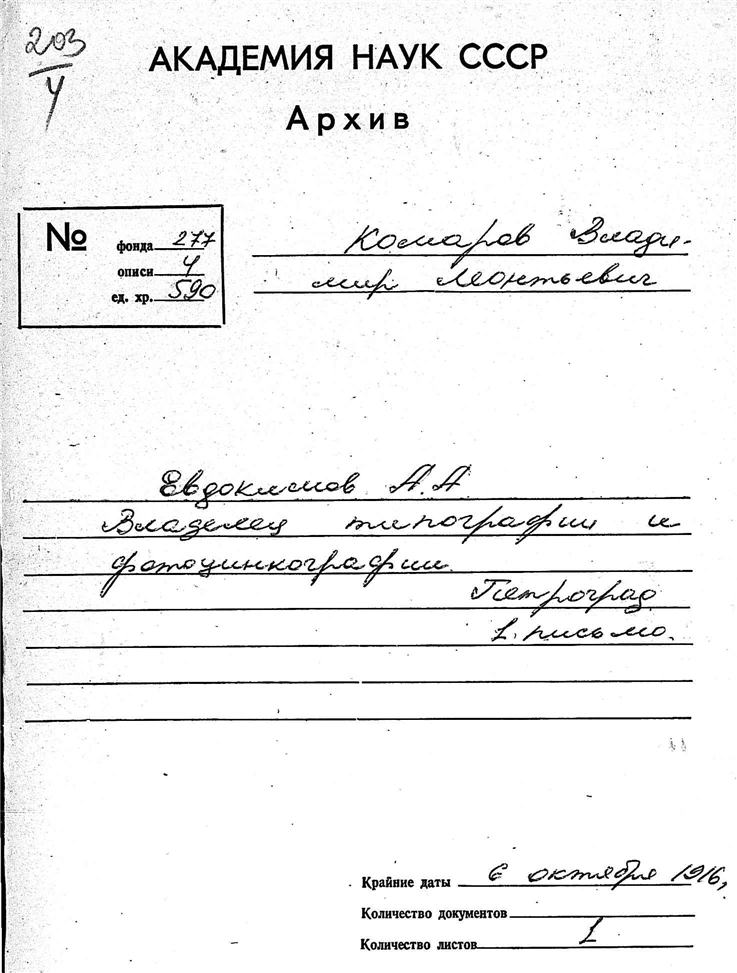 203
4
АКАДЕМИЯ НАУК СССР
Архив
№
фонда 277
описи 4
ед. хр. 590
Комаров Влади-
мир Леонтьевич
Евдокимов А.А
Владелец типографии и
фотоцинкографии.
Петроград
1. письмо.
Крайние даты 6 октября 1916,
Количество документов
Количество листов 1